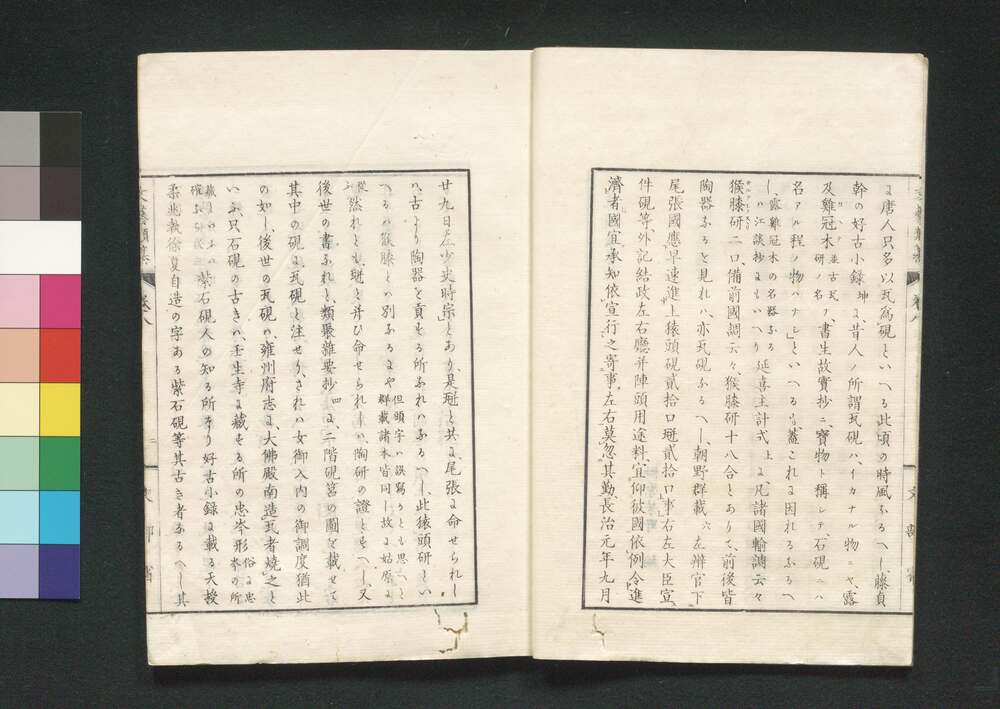 に唐人只多以瓦為硯といへる此頃の時風なるへし藤貞
幹の好古小録坤に昔人ノ所謂瓦硯ハイカナル物ニヤ露
及雞冠木並古瓦研ノ名ノ書生故實抄ニ寶物ト稱シテ石硯ニハ
名アル程ノ物ハナシといへるも蓋これに因れるなるへ
し露雞冠木の名器なるハ江談抄にもいへり延喜主計式上に凡諸國輸調云々
猴膝研二口備前國調云々猴膝研十八合とありて前後皆
陶器なるを見れハ亦瓦硯なるへし朝野群載六左辨官下
尾張國應早速進上猿頭硯貳拾口瓼貳拾口事右左大臣宣
件硯等外記結政左右廳并陣頭用途料宜仰彼國依例令進
濟者國宜承知依宣行之寄事左右莫忽其勤長治元年九月
廿九日左少史時宗とあり是瓼と共に尾張に命せられし
ハ古より陶器を貢する所なれハなるへし此猿頭研とい
へるハ猴膝とハ別なるにや但頭字ハ誤寫かとも思へと群載諸本皆同し故に姑原に
從ふ然れとも瓼と并ひ命せられしハ陶研の證とすへし又
後世の書なれと類聚雜要抄四に二階硯筥の圖を載せて
其中の硯に瓦硯と注せりされハ女御入内の御調度猶此
の如し後世の瓦硯ハ雍州府志に大佛殿南造瓦者燒之と
いふ只石硯の古きハ壬生寺に藏する所の忠岑形俗に忠岑の所
藏といふハ確ならす紫石硯人の知る所なり好古小録に載る天授
柔兆執徐夏自造の字ある紫石硯等其古き者なるへし其